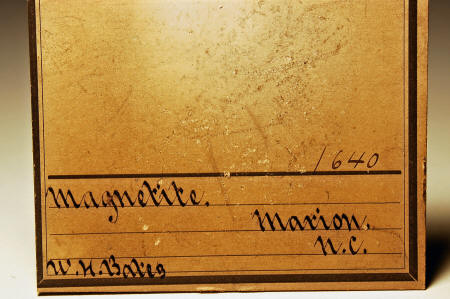 1640
Magnetite.
Marion,
N.C.
W.H. Bates